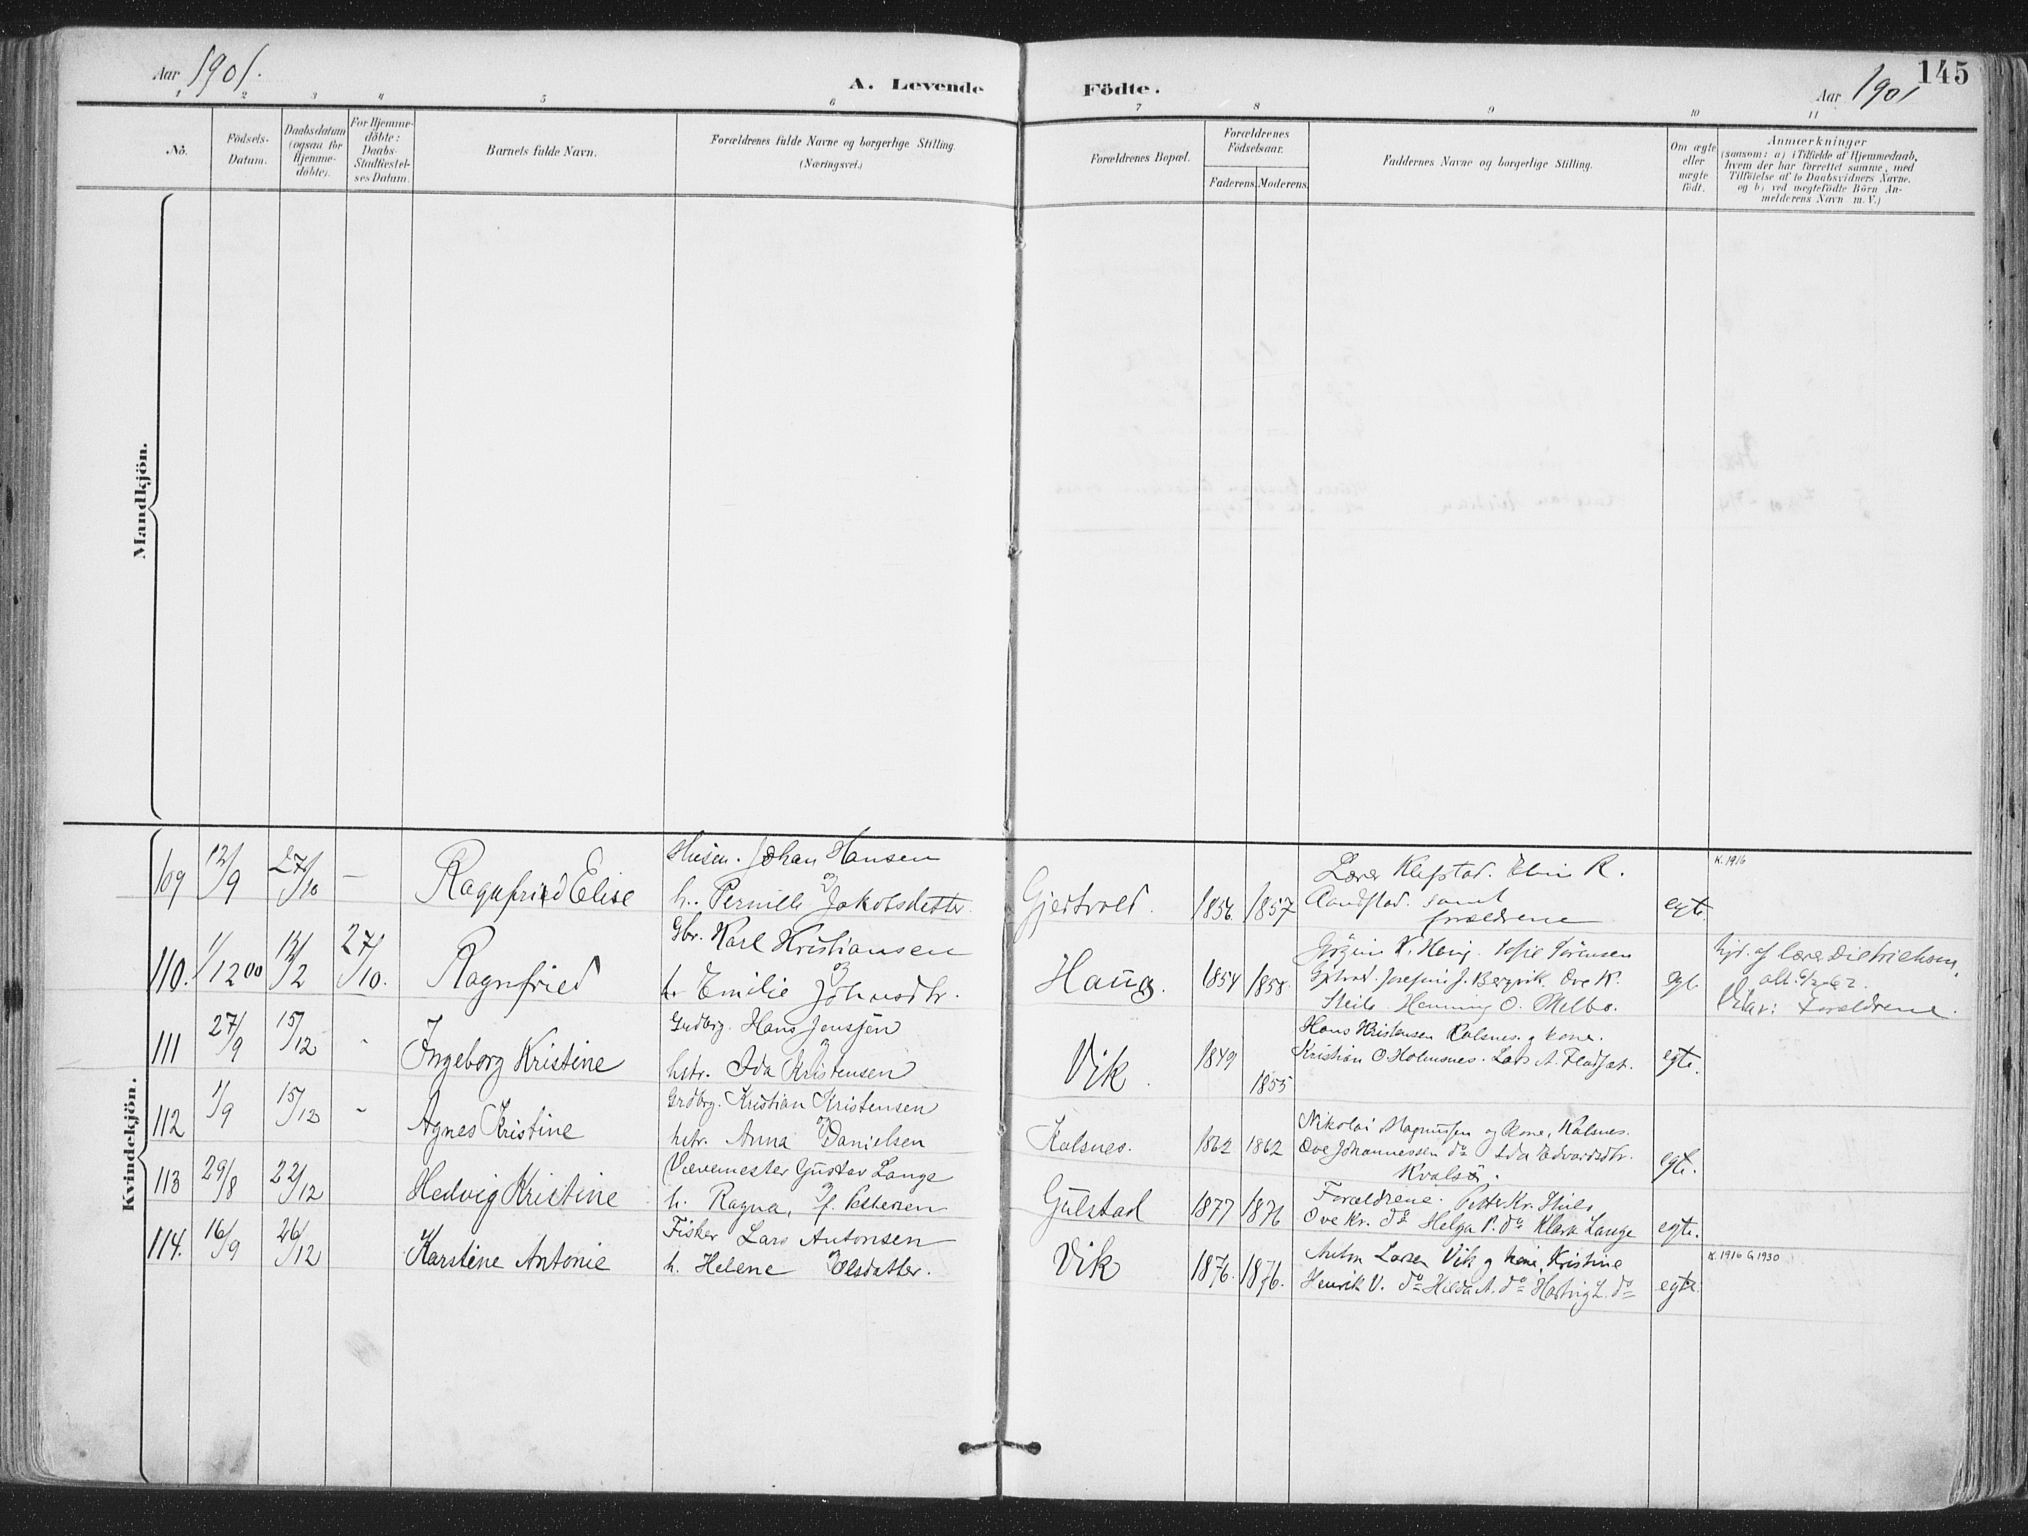 Aar 1901.
A. Levende
Födte.
Aar 1901
145
1 2 3 4 5 6 7 8 9 10 11
No.
Födsels-Datum.
Daabsdatum (ogsaa for Hjemmedöbte).
For Hjemmedöbte: Daabs-Stadfæstelses Datum.
Barnets fulde Navn.
Forældrenes fulde Navne og borgerlige Stilling (Næringsvei.)
Forældrenes Bopæl.
Forældrenes Födselsaar.
Faderens.
Moderens.
Faddernes Navne og borgerlige Stilling.
Om ægte eller uægte födt.
Anmærkninger
(saasom: a) i Tilfælde af Hjemmedaab,
hvem der har forrettet samme, med
Tilföielse af to Daabsvidners Navne.
og b) ved uægtefödte Börn An-
melderens Navn m. V.)
Mandkjön.
Kvindekjön.
109 12/9 27/10 — Ragnfried Elise
Johan Hansen
og
h.. Pernille Jakobsdatter
Gjertvold. 1856. 1857
Lærer Klefstad. R.
Sandstad. samt
forældrene
egte.
K. 1916
110. 1/12 00 12/2 27/10. Ragnfried
Gbr. Karl Kristiansen
og
h. Emilie Johnsdtr.
Haug. 1854 1858.
Jörgine K. Haug. Sofie Sörensen
Josefine J. Bergvik. Ove K.
Henning O. Melbo.
egt.
hjd. af lærer Dietrichson,
Forældrene.
111 27/9 15/12 - Ingeborg Kristine
Gudbrg. Hans Jenssen
og
hstr. Ida Kristensen
Vik. 1849 1855
Hans Kristensen Kalsnes. og kone.
Kristian O. Holmsnes. Lars A. Fladsæt.
egte.
112 1/9 15/12 - Agnes Kristine
Grdbrg. Kristian Kristensen
og
hstr. Anna Danielsen
Kalsnes. 1862 1862
Nikolai Magnussen og kone, Kalsnes.
Ove Johannessen do Ida Edvardsdtr.
Kvalsö.
egt.
113 29/8 22/12 Hedvig Kristine
Vævemester Gustav Lange
og
h. Ragna, f. Pettersen
Gulstad 1877 1876
Forældrene. Petter Kr.
Ove Kr. do Helga P. do Klara Lange
egte.
114. 16/9 26/12 Karstine Antonie
Fisker Lars Antonsen
og
h. Helene Olsdatter.
Vik 1876. 1876.
Anton Larsen Vik og kone, Kristine
Henrik V. do Hilda A. do Hartvig L. do
egte.
K. 1916 G 1930